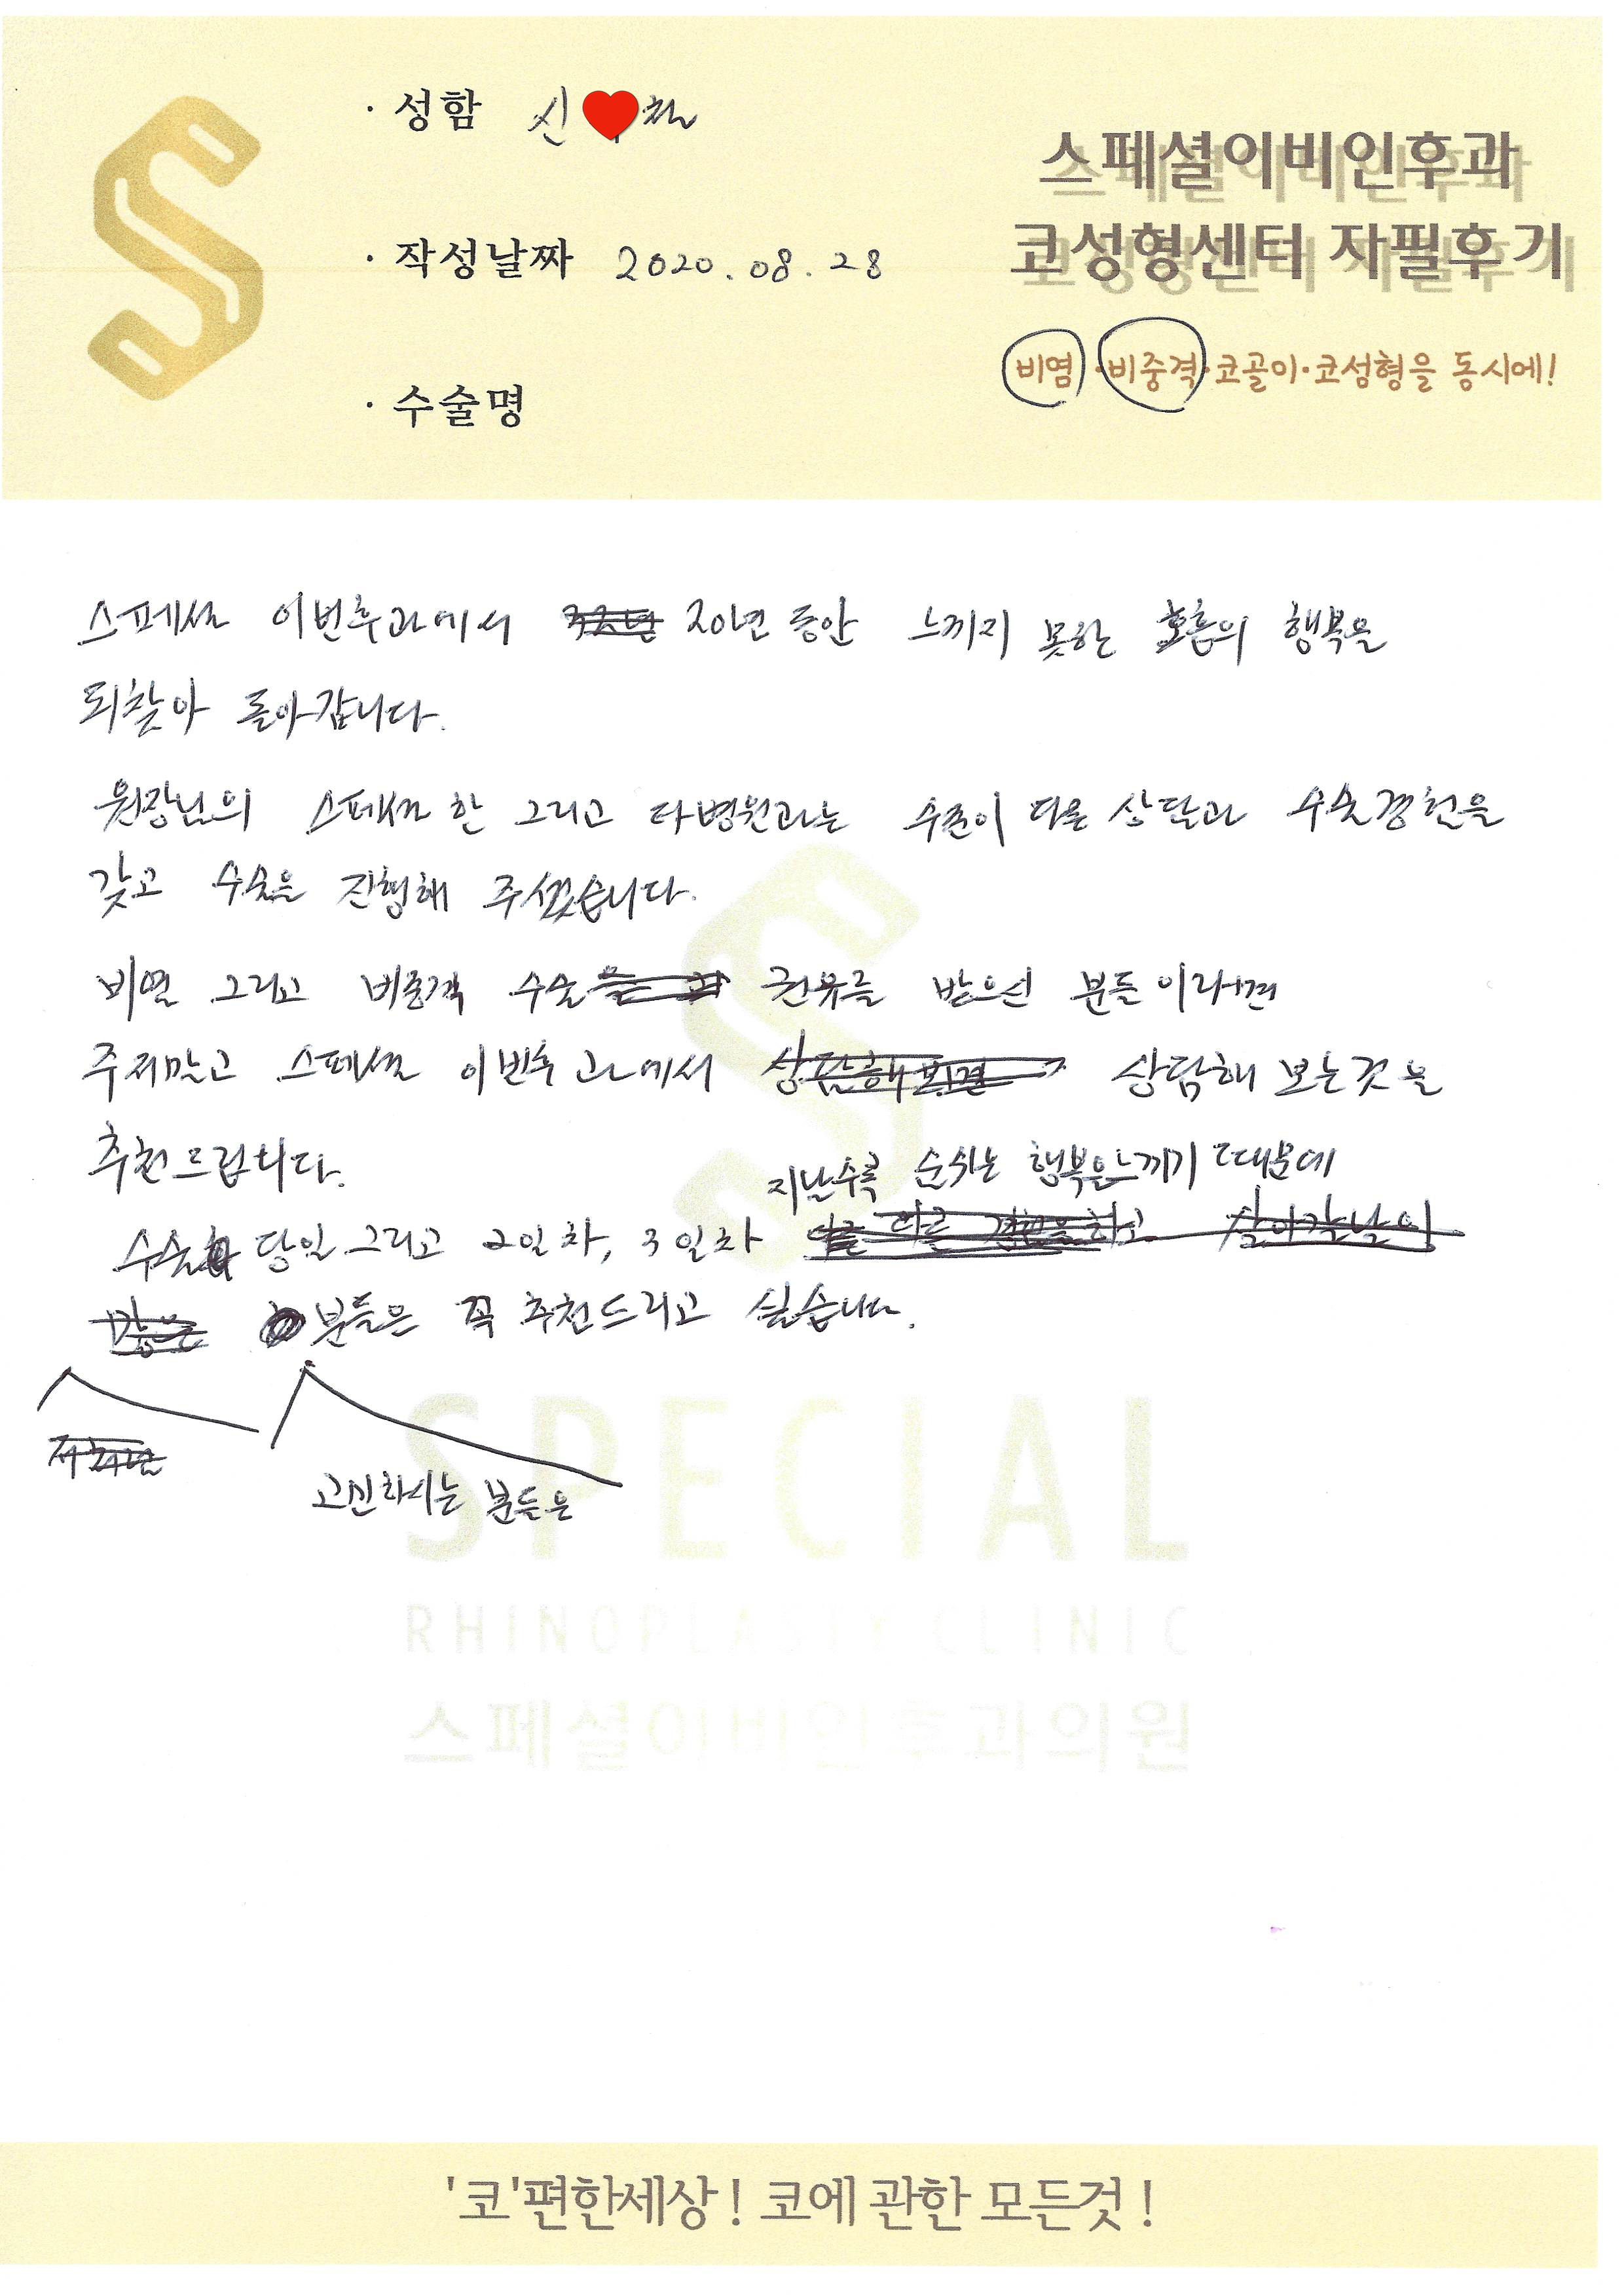 · 성함 신 철
스페셜이비인후과
코성형센터 자필후기
· 작성날짜 2020.08.28
비염·비중격·코골이·코성형을 동시에!
· 수술명
스페셜 이빈후과에서 20년 동안 느끼지 못한 호흡의 행복을
되찾아 돌아갑니다.
원장님의 스페셜한 그리고 타병원과는 수준이 다른 상담과 수술경험을
갖고 수술을 진행해 주셨습니다.
비염 그리고 비중격 수술 권유를 받으신 분들이라면
주저말고 스페셜 이빈후과에서 상담해 보는것을
추천드립니다.
지날수록 숨쉬는 행복을느끼기 때문에
수술 당일 그리고 2일차, 3일차
분들은 꼭 추천드리고 싶습니다.
고민하시는 분들은
SPECIAL
RHINOPLASTY CLINIC
스페셜이비인후과의원
'코'편한세상! 코에 관한 모든것!